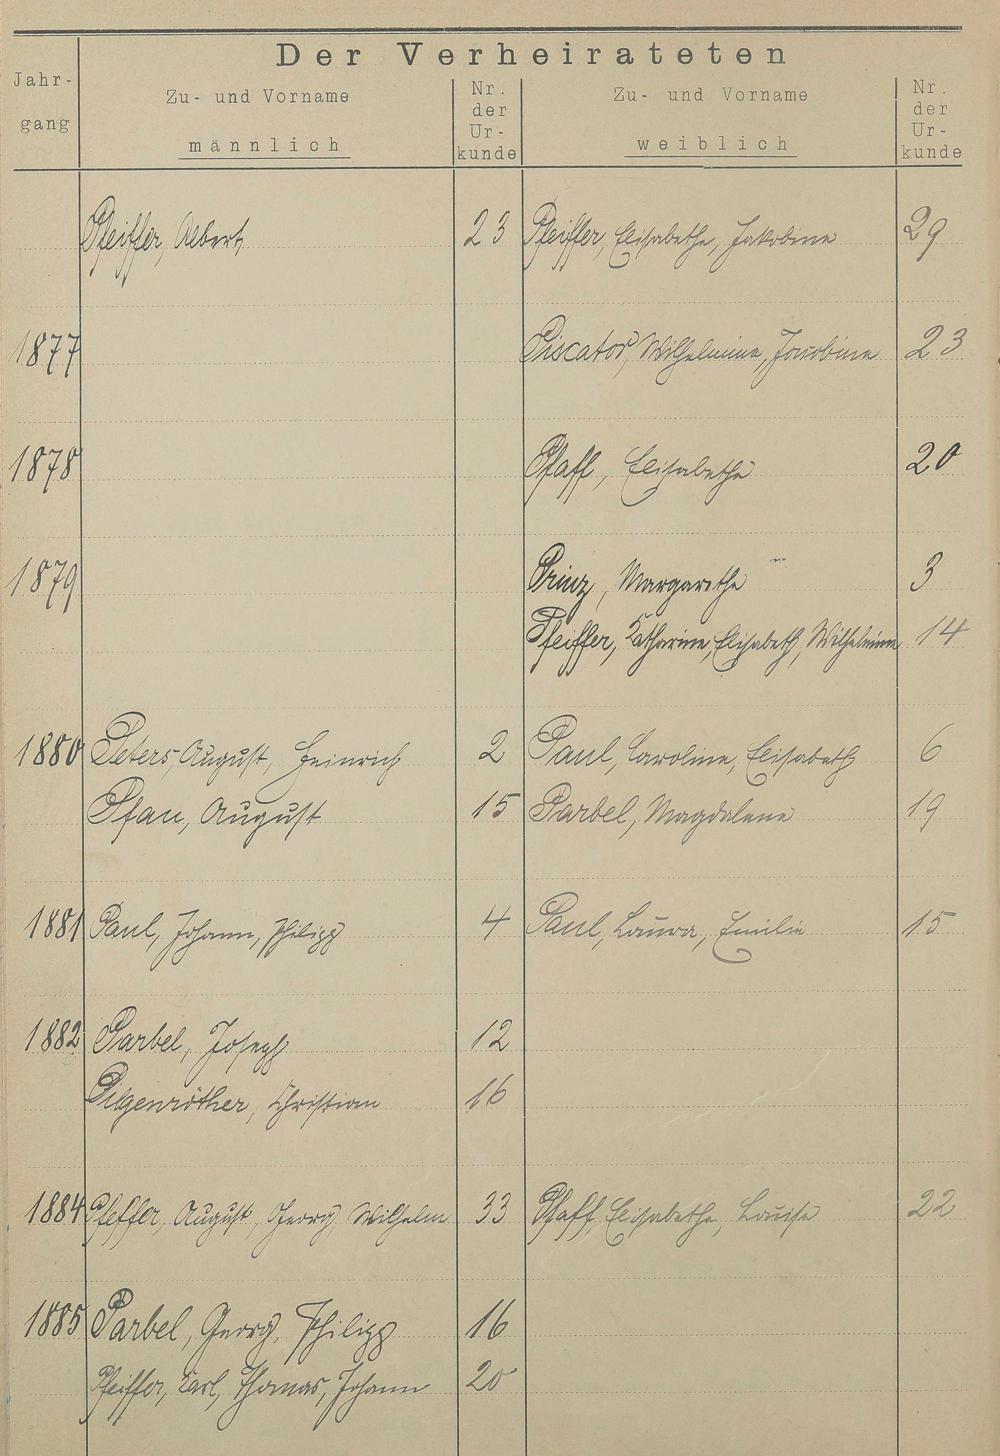 Der Verheirateten
Jahrgang Zu- und Vorname männlich Nr. der Urkunde Zu- und Vorname weiblich Nr. der Urkunde
Pfeiffer, Albert 23 Pfeiffer, Elisabethe, Jakobine 29
1877 Piscator, Wilhelmine, Jacobine 23
1878 Pfaff, Elisabethe 20
1879 Prinz, Margarethe 3
Pfeiffer, Katharine, Elisabeth, Wilhelmine 14
1880 Peters, August, Heinrich 2 Paul, Caroline, Elisabeth 6
Pfau, August 15 Parbel, Magdalene 19
1881 Paul, Johann, Philipp 4 Paul, Laura, Emilie 15
1882 Parbel, Joseph 12
Pilgenröther, Christian 16
1884 Pfeffer, August, Georg, Wilhelm 33 Pfaff, Elisabethe, Louise 22
1885 Parbel, Georg, Philipp 16
Pfeiffer, Karl, Thomas, Johann 20